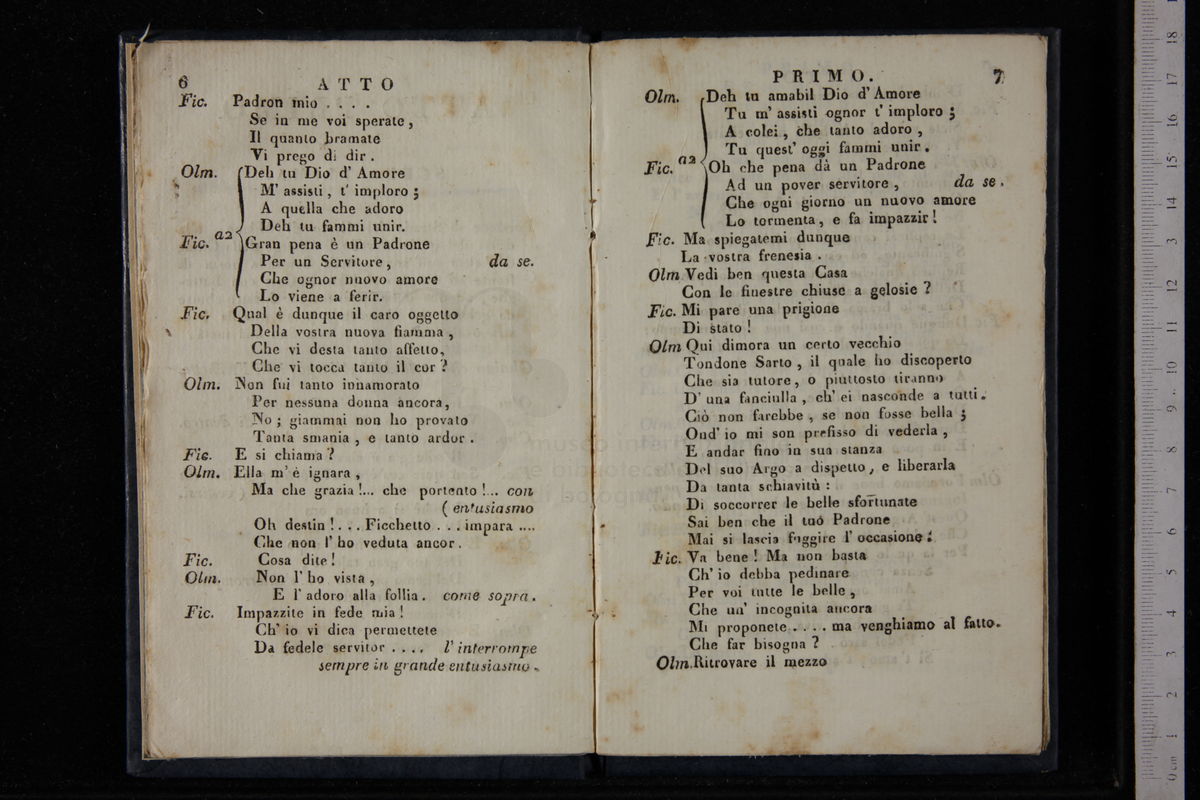 6
ATTO
Fic. Padron mio . . . .
Se in me voi sperate ,
Il quanto bramate
Vi prego di dir .
Olm. Deh tu Dio d' Amore
M' assisti , t' imploro ;
A quella che adoro
Deh tu fammi unir.
a2
Fic. Gran pena è un Padrone
Per un Servitore , da se.
Che ognor nuovo amore
Lo viene a ferir.
Fic. Qual è dunque il caro oggetto
Della vostra nuova fiamma ,
Che vi desta tanto affetto,
Che vi tocca tanto il cor ?
Olm. Non fui tanto innamorato
Per nessuna donna ancora,
No ; giammai non ho provato
Tanta smania , e tanto ardor .
Fic. E si chiama ?
Olm. Ella m' è ignara ,
Ma che grazia !... che portento !... con
( entusiasmo
Oh destin ! . . . Ficchetto . . . impara ....
Che non l' ho veduta ancor .
Fic. Cosa dite !
Olm. Non l' ho vista ,
E l' adoro alla follia . come sopra .
Fic. Impazzite in fede mia !
Ch' io vi dica permettete
Da fedele servitor . . . . l' interrompe
sempre in grande entusiasmo .
PRIMO.
7
Olm. Deh tu amabil Dio d' Amore
Tu m' assisti ognor t' imploro ;
A colei , che tanto adoro ,
Tu quest' oggi fammi unir .
a2
Fic. Oh che pena dà un Padrone
Ad un pover servitore , da se .
Che ogni giorno un nuovo amore
Lo tormenta , e fa impazzir !
Fic. Ma spiegatemi dunque
La vostra frenesia .
Olm Vedi ben questa Casa
Con le finestre chiuse a gelosie ?
Fic. Mi pare una prigione
Di stato !
Olm Qui dimora un certo vecchio
Tondone Sarto , il quale ho discoperto
Che sia tutore , o piuttosto tiranno
D' una fanciulla , ch' ei nasconde a tutti .
Ciò non farebbe , se non fosse bella ;
Ond' io mi son prefisso di vederla ,
E andar fino in sua stanza
Del suo Argo a dispetto , e liberarla
Da tanta schiavitù :
Di soccorrer le belle sfortunate
Sai ben che il tuo Padrone
Mai si lascia fuggire l' occasione .
Fic. Va bene ! Ma non basta
Ch' io debba pedinare
Per voi tutte le belle ,
Che un' incognita ancora
Mi proponete . . . . ma venghiamo al fatto.
Che far bisogna ?
Olm. Ritrovare il mezzo